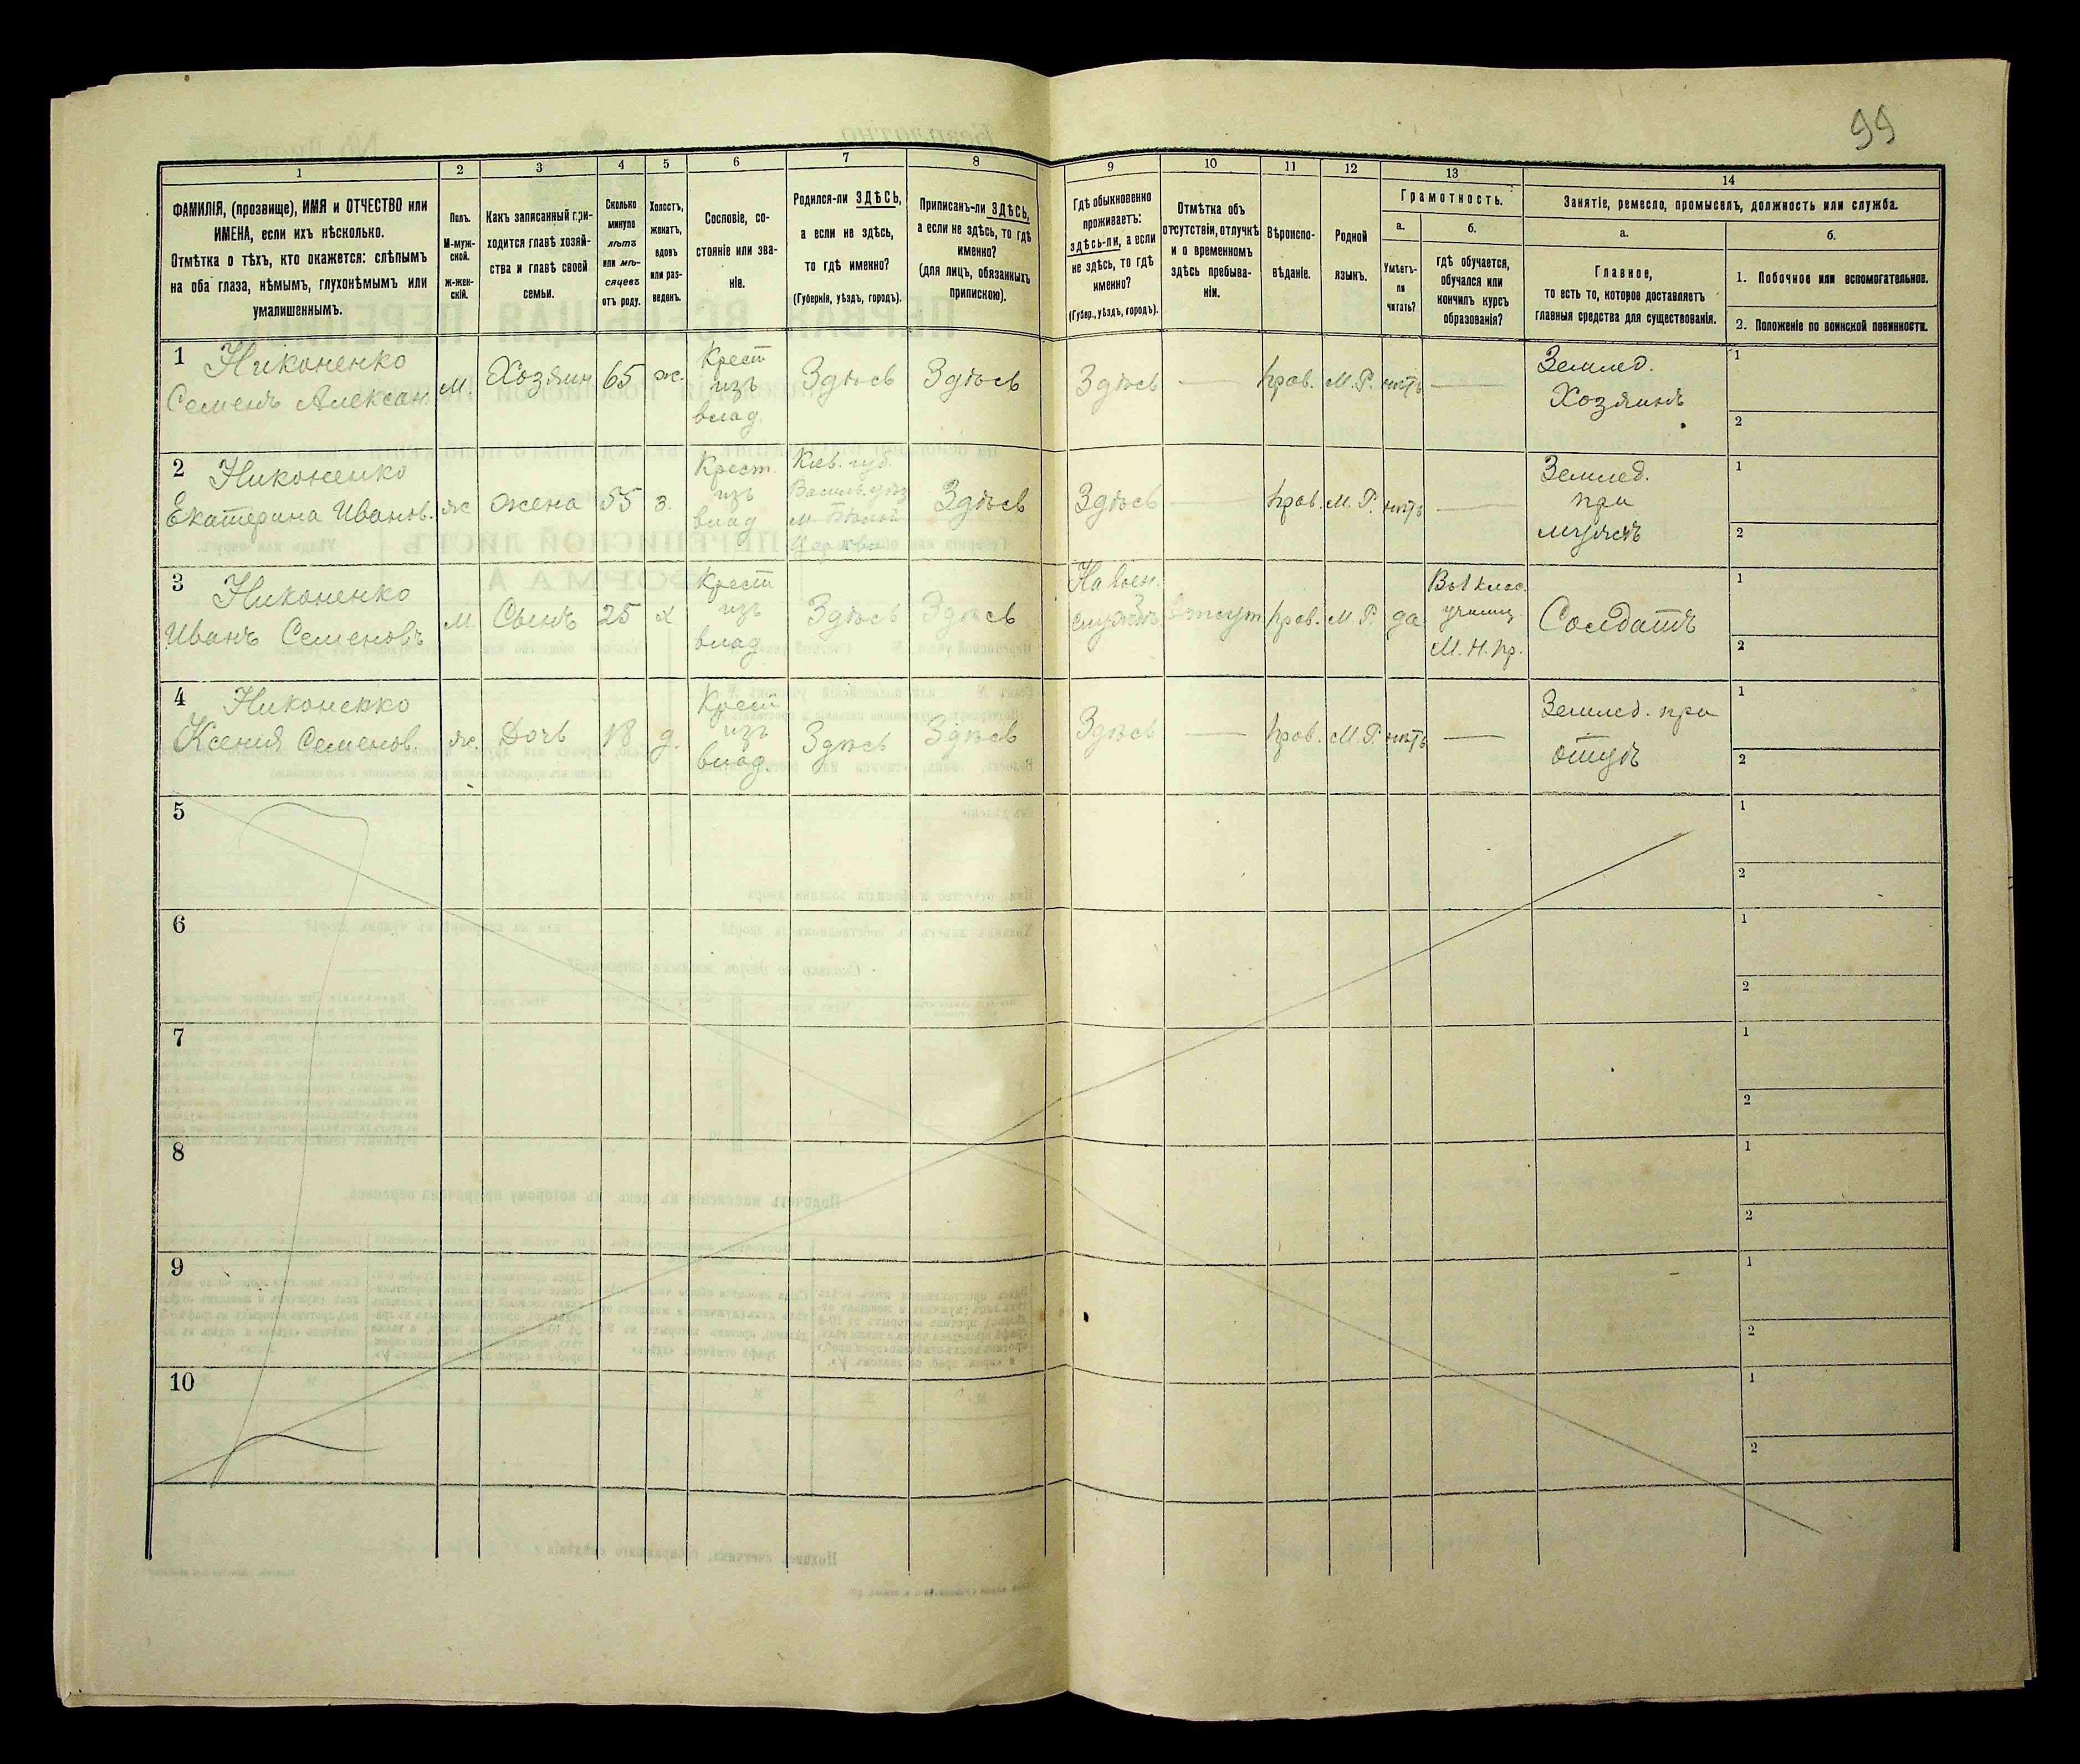 99
1
2
3
4
5
6
7
8
9
10
11
12
13
14
ФАМИЛІЯ, (прозвище), ИМЯ и ОТЧЕСТВО или
ИМЕНА, если ихъ нѣсколько.
Отмѣтка о тѣхъ, кто окажется: слѣпымъ
на оба глаза, нѣмымъ, глухонѣмымъ или
умалишеннымъ.
Полъ.
М-муж-
ской.
Ж-жен-
скій.
Какъ записанный при-
ходится главѣ хозяй-
ства и главѣ своей
семьи.
Сколько
минуло
лѣтъ
или мѣ-
сяцевъ
отъ роду.
Холостъ,
женатъ,
вдовъ
или раз-
веденъ.
Сословіе, со-
стояніе или зва-
ніе.
Родился-ли ЗДѢСЬ,
а если не здѣсь,
то гдѣ именно?
(Губернія, уѣздъ, городъ).
Приписанъ-ли ЗДѢСЬ,
а если не здѣсь, то гдѣ
именно?
(для лицъ, обязанныхъ
припискою).
Гдѣ обыкновенно
проживаетъ:
здѣсь-ли, а если
не здѣсь, то гдѣ
именно?
(Губер., уѣздъ, городъ).
Отмѣтка объ
отсутствіи, отлучкѣ
и о временномъ
здѣсь пребыва-
ніи.
Вѣроиспо-
вѣданіе.
Родной
языкъ.
Грамотность.
а.
Умѣетъ-
ли
читать?
б.
гдѣ обучается,
обучался или
кончилъ курсъ
образованія?
Занятіе, ремесло, промыселъ, должность или служба.
а.
Главное,
то есть то, которое доставляетъ
главныя средства для существованія.
б.
1. Побочное или вспомогательное.
2. Положеніе по воинской повинности.
1 Никоненко
Семенъ Алексан.
М.
Хозяин
65
ж.
Крест
изъ
влад.
Здѣсь
Здѣсь
Здѣсь
—
прав.
М. Р.
нѣтъ
—
Землед.
Хозяинъ
1
2
2 Никоненко
Екатерина Иванов.
ж
жена
55
з.
Крест.
изъ
влад
Кіев. губ.
Васильк. уѣз
м. Бѣлой
Церкви
Здѣсь
Здѣсь
—
прав.
М. Р.
нѣтъ
—
Землед.
при
мужѣ
1
2
3 Никоненко
Иванъ Семеновъ
М.
Сынъ
25
х
Крест
изъ
влад
Здѣсь
Здѣсь
На воен.
службѣ
отсут
прав.
М. Р.
да
Въ 1 клас.
училищ.
М. Н. пр.
Солдатъ
1
2
4 Никоненко
Ксенія Семенов.
ж.
Дочь
18
д.
Крест
изъ
влад.
Здѣсь
Здѣсь
Здѣсь
—
прав.
М. Р.
нѣтъ
—
Землед. при
отцѣ
1
2
5
1
2
6
1
2
7
1
2
8
1
2
9
1
2
10
1
2